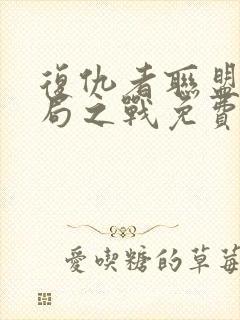 復仇者聯盟
局之戰免費
愛喫糖的草莓